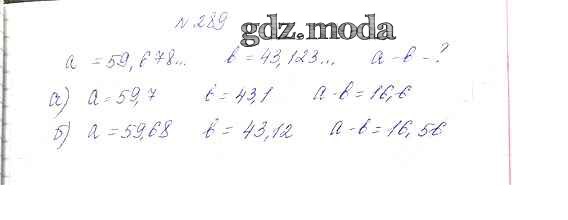 № 289
gdz.moda
a = 59,678... в = 43,123... a - в - ?
а) a = 59,7 в = 43,1 a - в = 16,6
б) a = 59,68 в = 43,12 a - в = 16,56